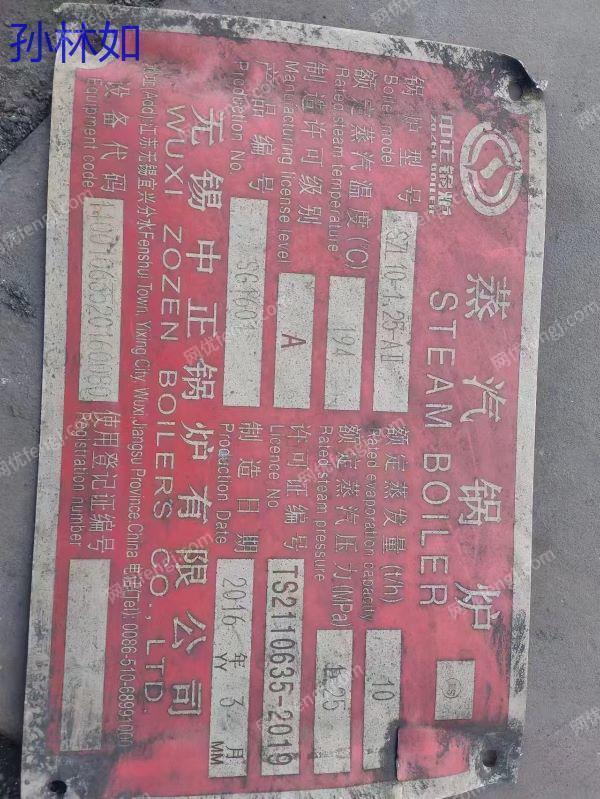 孙林如
中正锅炉
ZOZEN BOILER
蒸汽锅炉
STEAM BOILER
锅炉型号
Boiler model
SZL10-1.25-AⅡ
额定蒸发量(t/h)
Rated evaporation capacity
10
额定蒸汽温度(℃)
Rated steam temperature
194
额定蒸汽压力(MPa)
Rated steam pressure
1.25
制造许可级别
Manufacturing license level
A
许可证编号
Licence No.
TS2110635-2019
产品编号
Production No.
制造日期
Production Date
2016年3月
YY MM
无锡中正锅炉有限公司
WUXI ZOZEN BOILERS CO., LTD.
江苏无锡宜兴分水Fenshui Town, Yixing City, Wuxi Jiangsu Province,China 电话(Tel): 0086-510-68991000
设备代码
Equipment code
使用登记证编号
Registration number
网优fengj.com